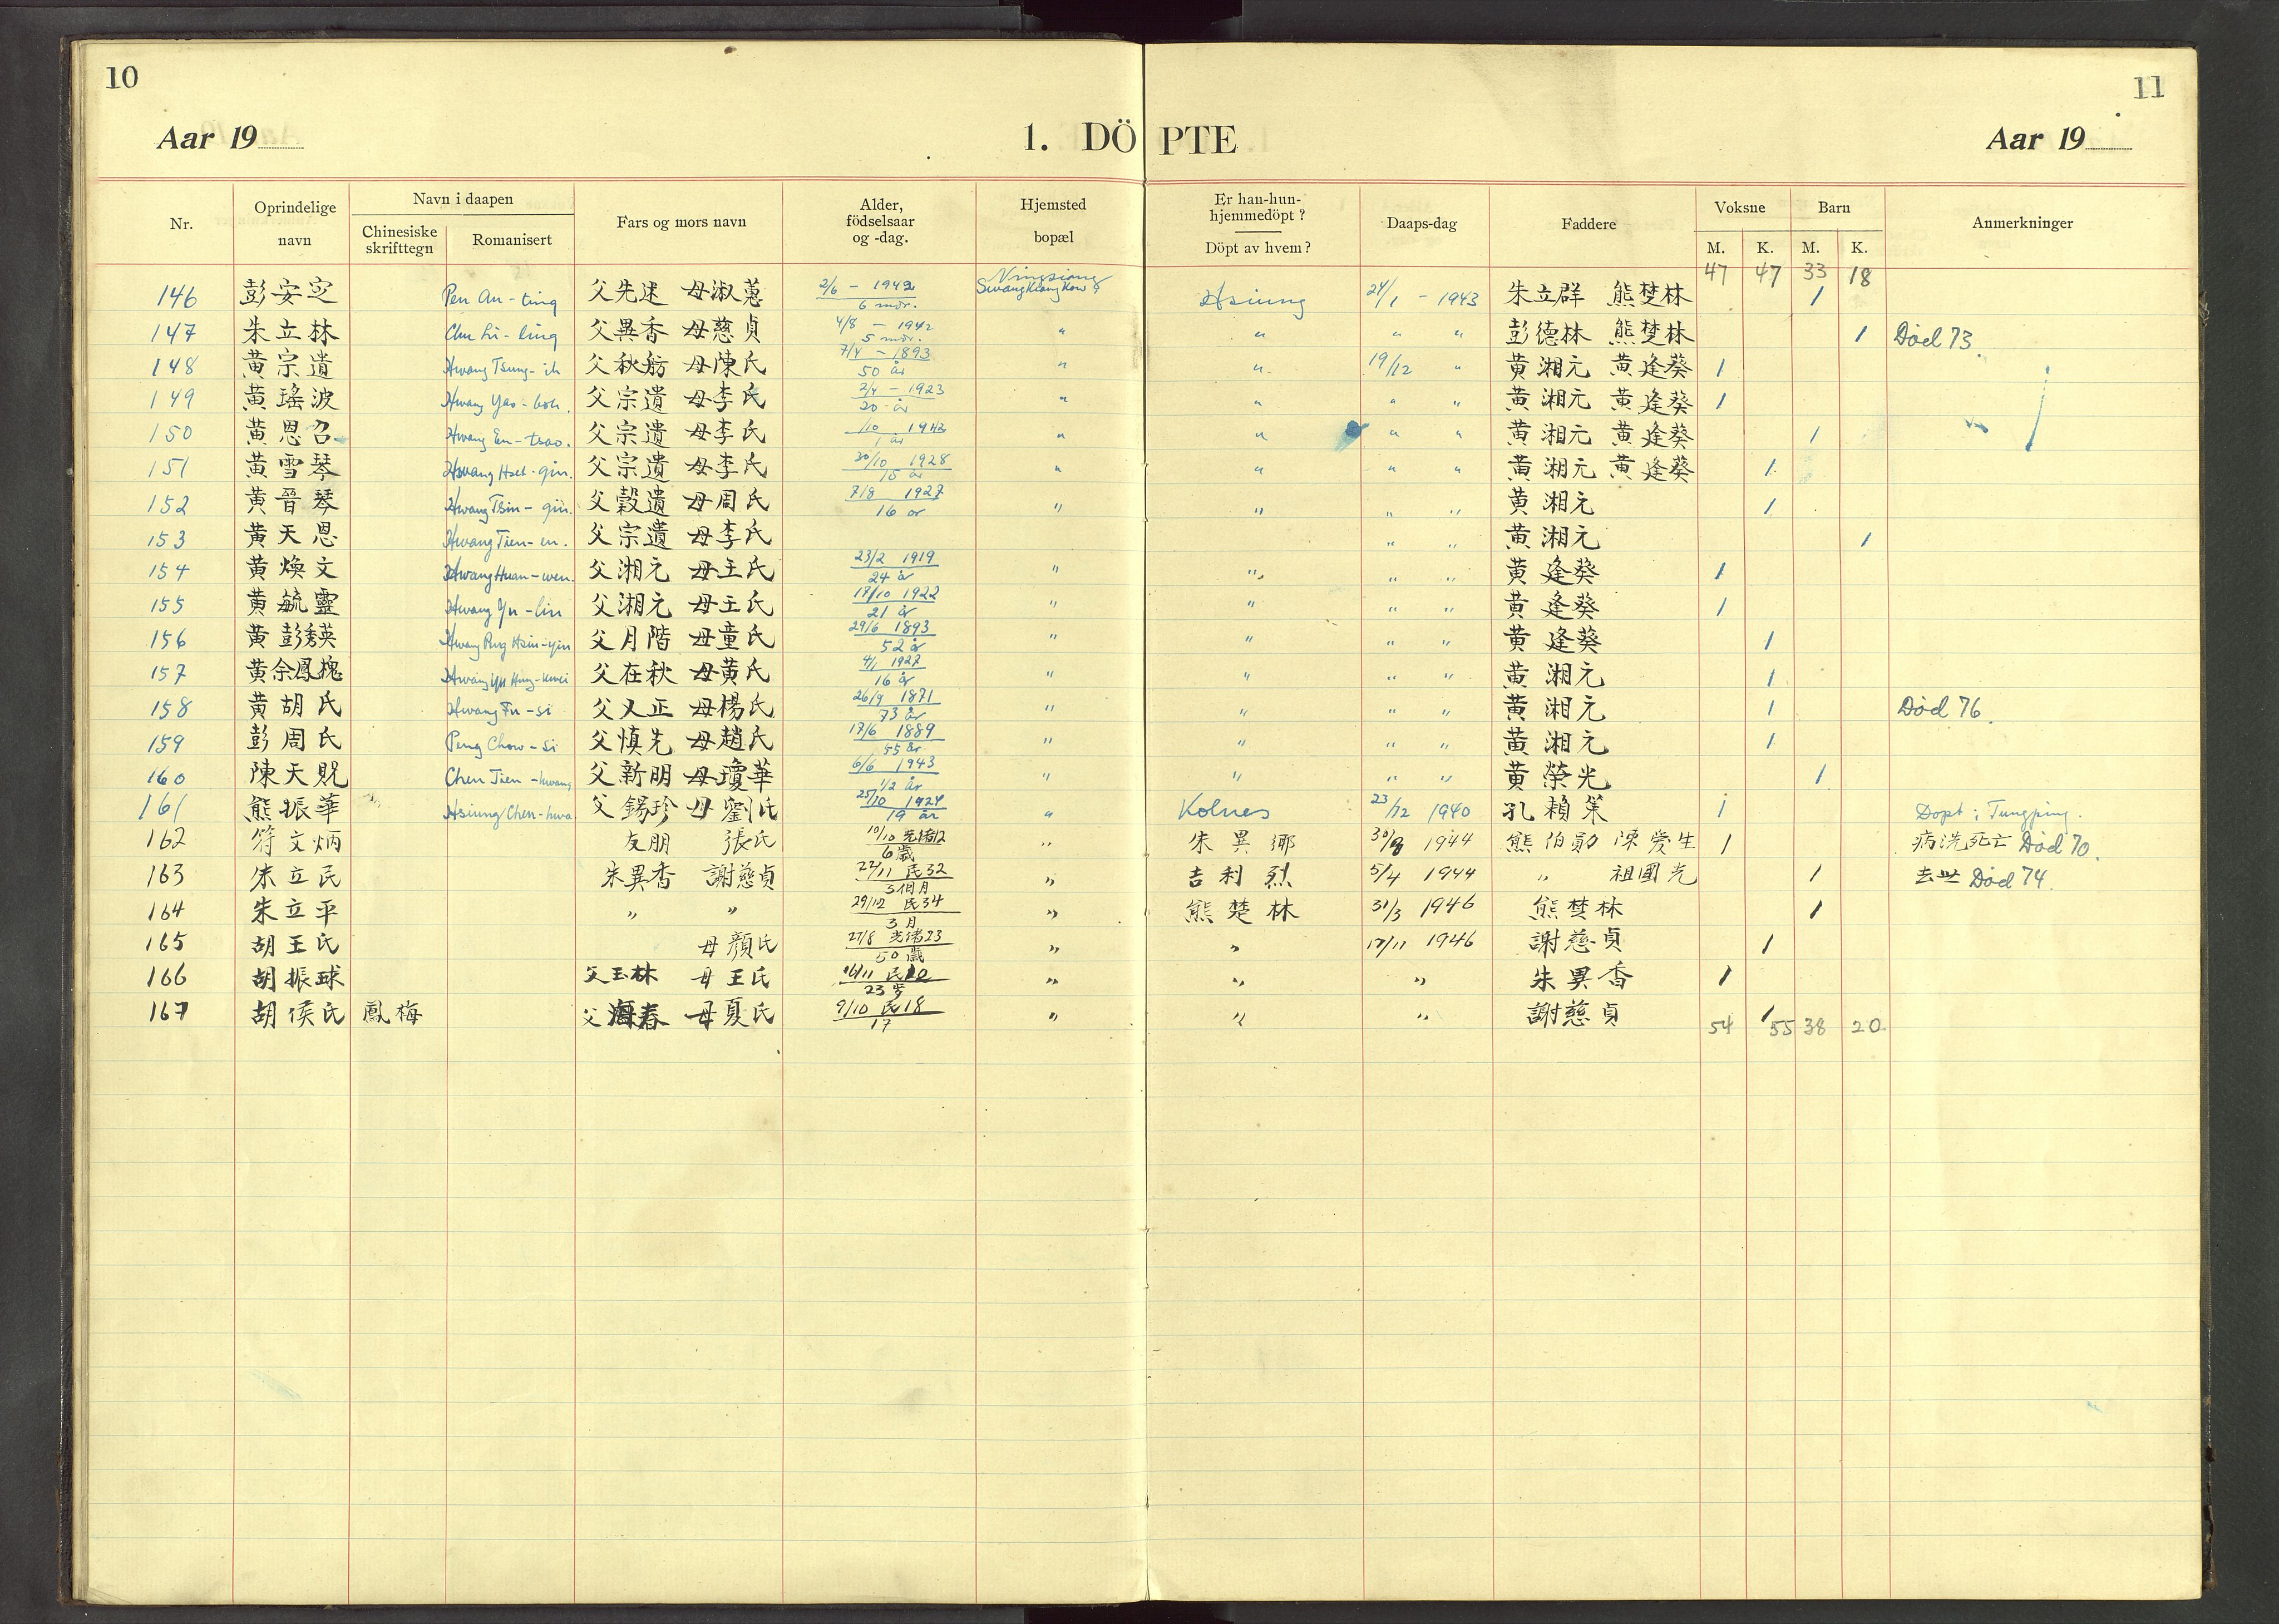 10
11
Aar 19
1. DÖPTE
Aar 19
Nr. Oprindelige navn Navn i daapen Chinesiske skrifttegn Romanisert Fars og mors navn Alder, födselsaar og -dag. Hjemsted bopæl Er han-hun-hjemmedöpt? Döpt av hvem? Daaps-dag Faddere Voksne M. K. Barn M. K. Anmerkninger
47 47 33 18
146 彭安定 Pen An-ting 父先述 母淑蕙 2/6 - 1942 6 mdr. Ningsiang Hsiung 24/1 - 1943 朱立群 熊楚林 1
147 朱立林 Chu Li-ling 父異香 母慈貞 4/8 - 1942 5 mdr. " " " " 彭德林 熊楚林 1 Död 73
148 黄宗遺 Hwang Tsung-ih 父秋舫 母陳氏 7/4 - 1893 50 år " " 19/12 " 黄湘元 黄逢葵 1
149 黄瑤波 Hwang Yao-boh. 父宗遺 母李氏 2/4 - 1923 20 år " " " " 黄湘元 黄逢葵 1
150 黄恩召 Hwang En-tsao. 父宗遺 母李氏 /10 1942 1 år " " " " 黄湘元 黄逢葵 1
151 黄雪琴 Hwang Hset-qin. 父宗遺 母李氏 30/10 1928 15 år " " " " 黄湘元 黄逢葵 1
152 黄晉琴 Hwang Tsin-qin. 父穀遺 母周氏 7/8 1927 16 år " " " " 黄湘元 1
153 黄天恩 Hwang Tien-en. 父宗遺 母李氏 " " 黄湘元 1
154 黄煥文 Hwang Huan-wen. 父湘元 母王氏 23/2 1919 24 år " " " " 黄逢葵 1
155 黄毓靈 Hwang Yu-lin 父湘元 母王氏 17/10 1922 21 år " " " " 黄逢葵 1
156 黄彭秀英 Hwang Peng Hsiu-yin 父月階 母童氏 29/6 1893 52 år " " " " 黄逢葵 1
157 黄余鳳槐 Hwang Yu Hung-kwei 父在秋 母黄氏 4/1 1927 16 år " " " " 黄湘元 1
158 黄胡氏 Hwang Fu-si 父又正 母楊氏 26/9 1871 73 år " " " " 黄湘元 1 Död 76.
159 彭周氏 Peng Chow-si 父慎先 母趙氏 17/6 1889 55 år " " " " 黄湘元 1
160 陳天貺 Chen Tien-kwang 父新明 母瓊華 6/6 1943 1/2 år " " " " 黄榮光 1
161 熊振華 Hsiung Chen-hwa 父錫珍 母劉氏 25/10 1924 19 år " Kolnes 23/12 1940 孔賴 1 Döpt i Tungping.
162 符文炳 友朋 張氏 10/10 光緒12 6歲 " 朱異 30/8 1944 熊伯勛 陳愛生 1 死亡 Död 70.
163 朱立民 朱異香 謝慈貞 22/11 民32 3個月 " 吉利烈 5/4 1944 " 祖國光 1 去世 Död 74.
164 朱立平 " " 29/12 民34 3月 " 熊楚林 31/3 1946 熊楚林 1
165 胡王氏 母顏氏 27/8 光緒23 50歲 " " 17/11 1946 謝慈貞 1
166 胡振球 父玉林 母王氏 16/11 23岁 " " " 朱異香 1
167 胡侯氏 鳳梅 父海春 母夏氏 9/10 民18 17 " " " 謝慈貞 1
54 55 38 20